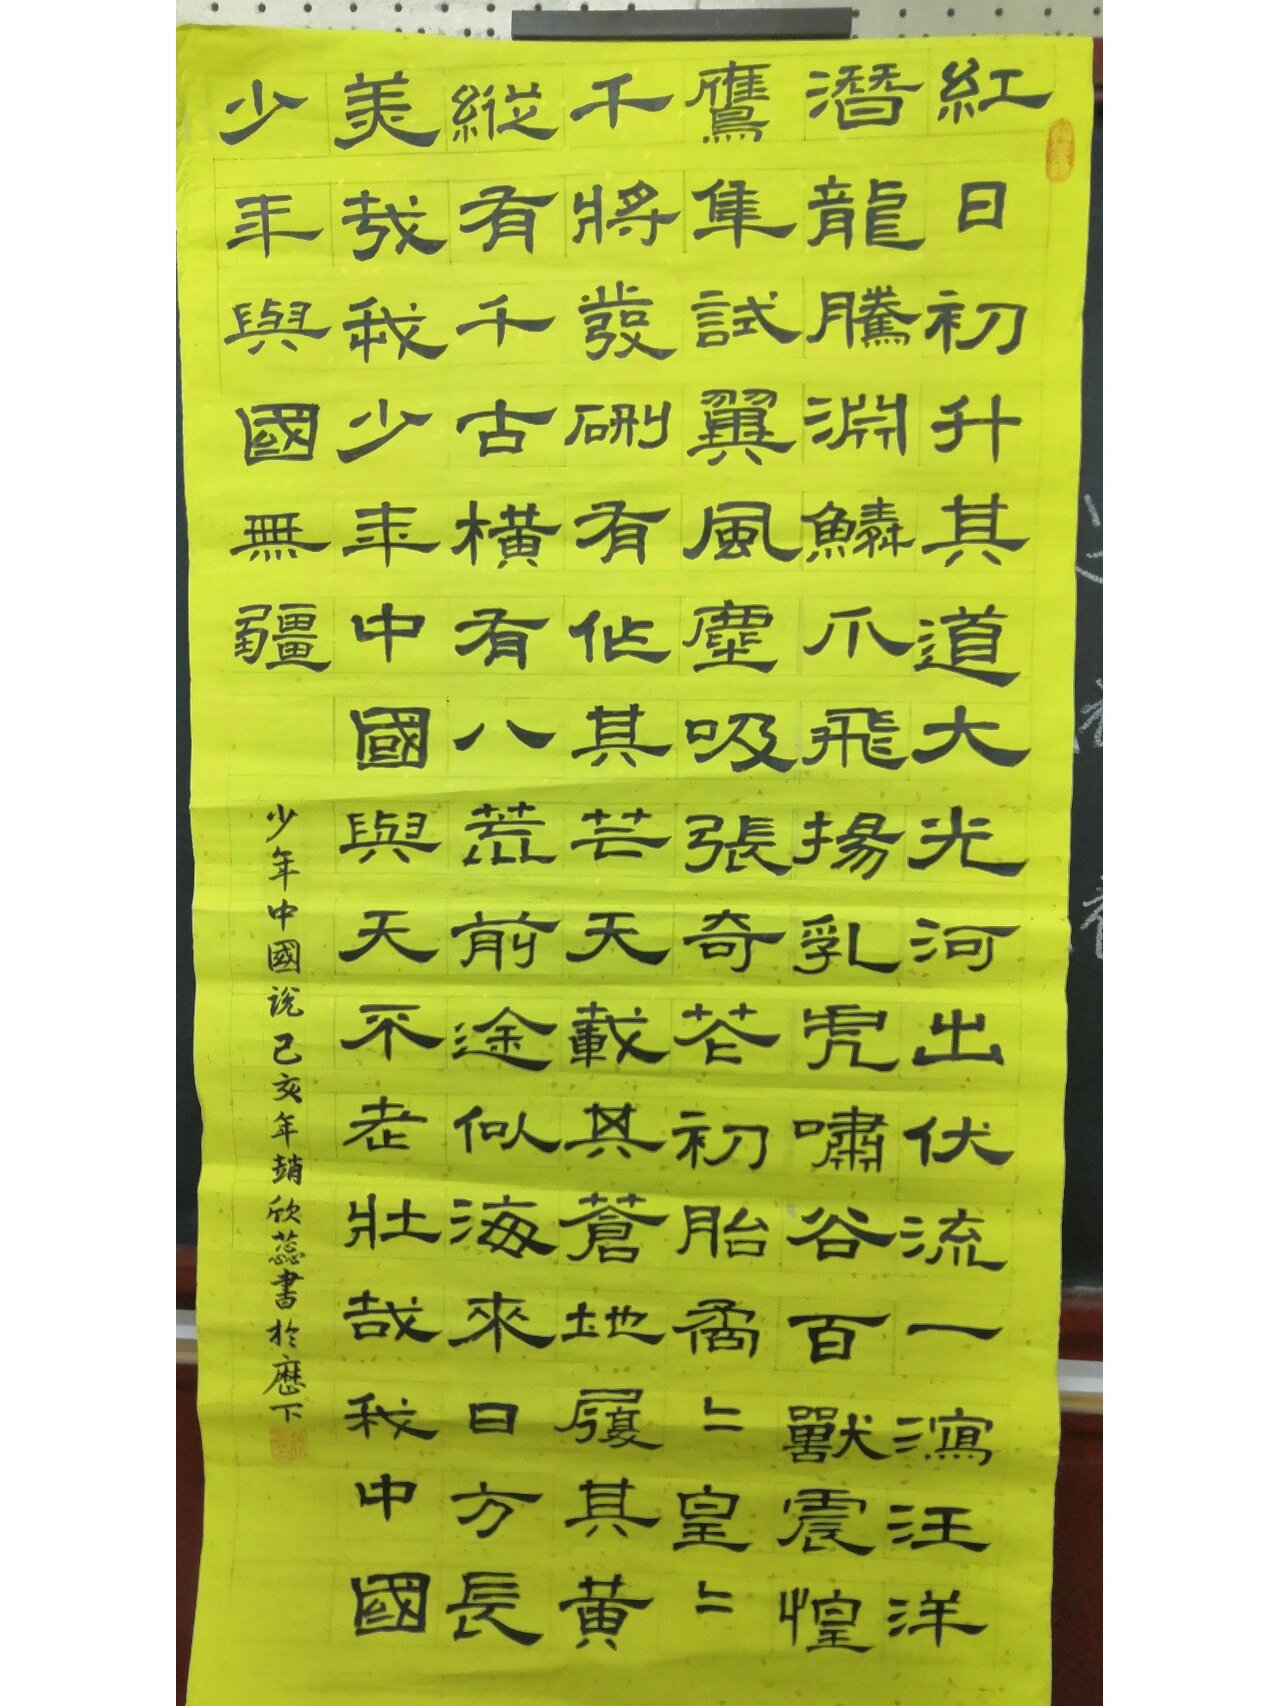 紅日初升其道大光河出伏流一瀉汪洋
潛龍騰淵鱗爪飛揚乳虎嘯谷百獸震惶
鷹隼試翼風塵吸張奇花初胎矞〻皇〻
千將發硎有作其芒天戴其蒼地履其黃
縱有千古橫有八荒前途似海來日方長
美哉我少年中國與天不老壯哉我中國
少年與國無疆
少年中國說己亥年趙欣蕊書於歷下